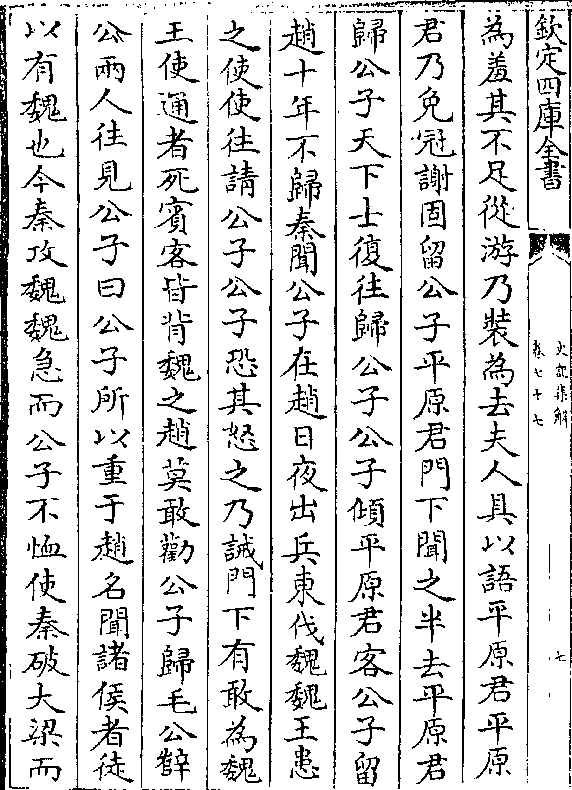 欽定四庫全書
史記集解
卷七十七
七
為羞其不足從游乃裝為去夫人具以語平原君平原
君乃免冠謝固留公子平原君門下聞之半去平原君
歸公子天下士復往歸公子公子傾平原君客公子留
趙十年不歸秦聞公子在趙日夜出兵東伐魏魏王患
之使使往請公子公子恐其怒之乃誡門下有敢為魏
王使通者死賓客皆背魏之趙莫敢勸公子歸毛公薛
公兩人往見公子曰公子所以重于趙名聞諸侯者徒
以有魏也今秦攻魏魏急而公子不恤使秦破大梁而